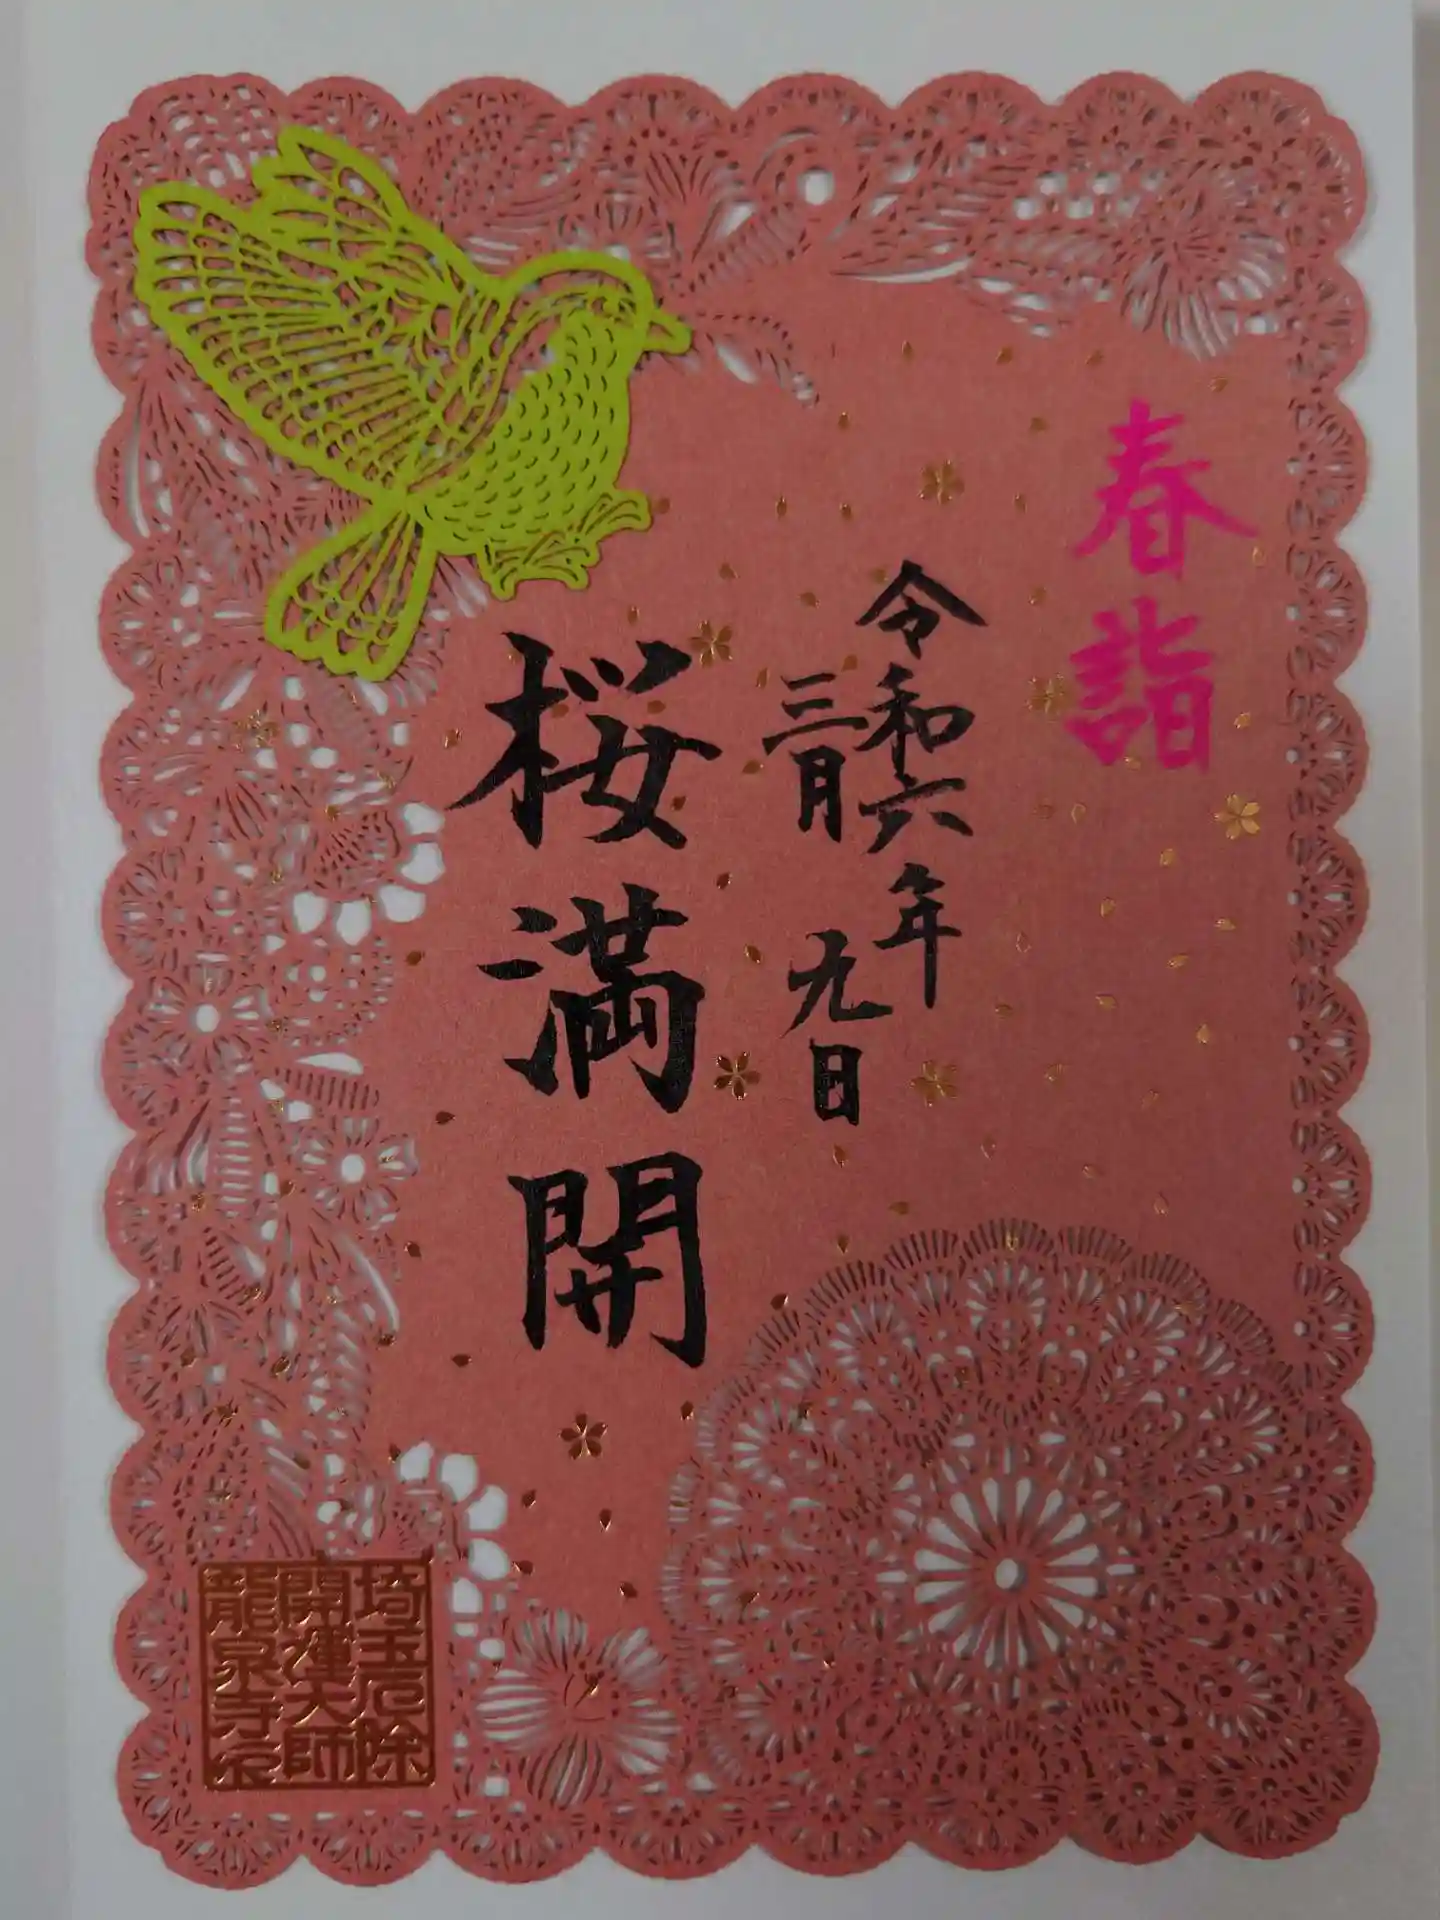 春詣
令和六年
三月九日
桜満開
埼玉厄除
開運大師
龍泉寺印